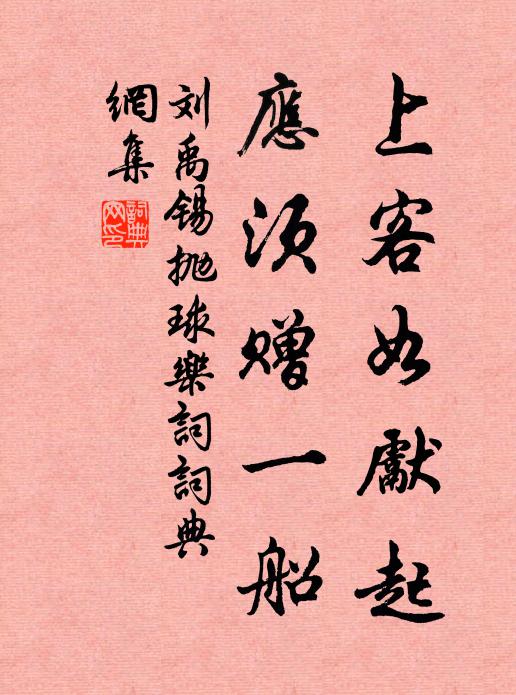 上客如獻起
應須贈一船
刘禹锡抛球樂詞詞典
網集
詞典
网印